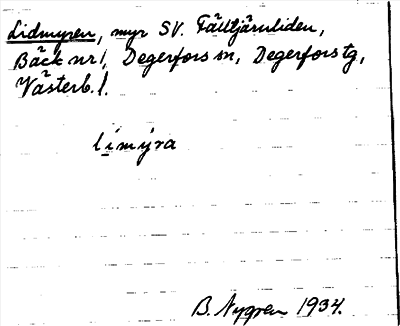 Lidmyren, myr SV. Fälltjärnliden,
Bäck nr 1, Degerfors sn, Degerfors tg,
Västerb. l.
límýra
B. Nygren 1934.